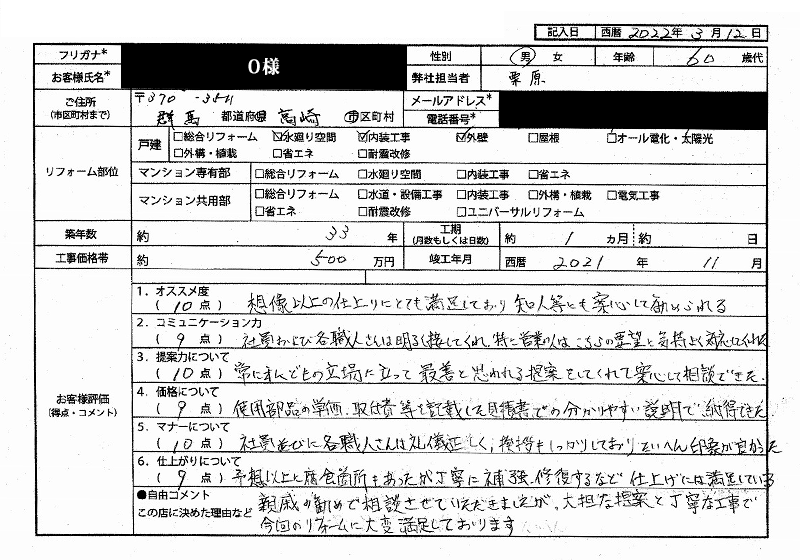 記入日 西暦 2022年 3月 12日
フリガナ* O様 性別 男 女 年齢 60 歳代
お客様氏名* 弊社担当者 栗原
ご住所 (市区町村まで) 〒370-3511 メールアドレス*
群馬 都道府県 高崎 市区町村 電話番号*
リフォーム部位
戸建 □総合リフォーム ☑水廻り空間 ☑内装工事 ☑外壁 □屋根 □オール電化・太陽光
□外構・植栽 □省エネ □耐震改修
マンション専有部 □総合リフォーム □水廻り空間 □内装工事 □省エネ
マンション共用部 □総合リフォーム □水道・設備工事 □内装工事 □外構・植栽 □電気工事
□省エネ □耐震改修 □ユニバーサルリフォーム
築年数 約 33 年 工期 (月数もしくは日数) 約 1 ヵ月 約 日
工事価格帯 約 500 万円 竣工年月 西暦 2021 年 11 月
お客様評価 (得点・コメント)
1. オススメ度
(10点) 想像以上の仕上りにとても満足しており 知人等にも安心して勧められる
2. コミュニケーション力
(9点) 社員および各職人さんは明るく接してくれ、特に営業の人はこちらの要望と気持よく対応してくれた
3. 提案力について
(10点) 常に私どもの立場に立って 最善と思われる提案をしてくれて安心して相談できた.
4. 価格について
(9点) 使用部品の単価、取付費等を記載した見積書での分かりやすい説明で納得できた
5. マナーについて
(10点) 社員並びに各職人さんは礼儀正しく、挨拶もしっかりしており たいへん印象が良かった
6. 仕上がりについて
(9点) 予想以上に腐食箇所もあったが丁寧に補強、修復するなど 仕上げには満足している
●自由コメント
この店に決めた理由など
親戚の勧めで相談させていただきましたが、大担な提案と丁寧な工事で
今回のリフォームに大変満足しております